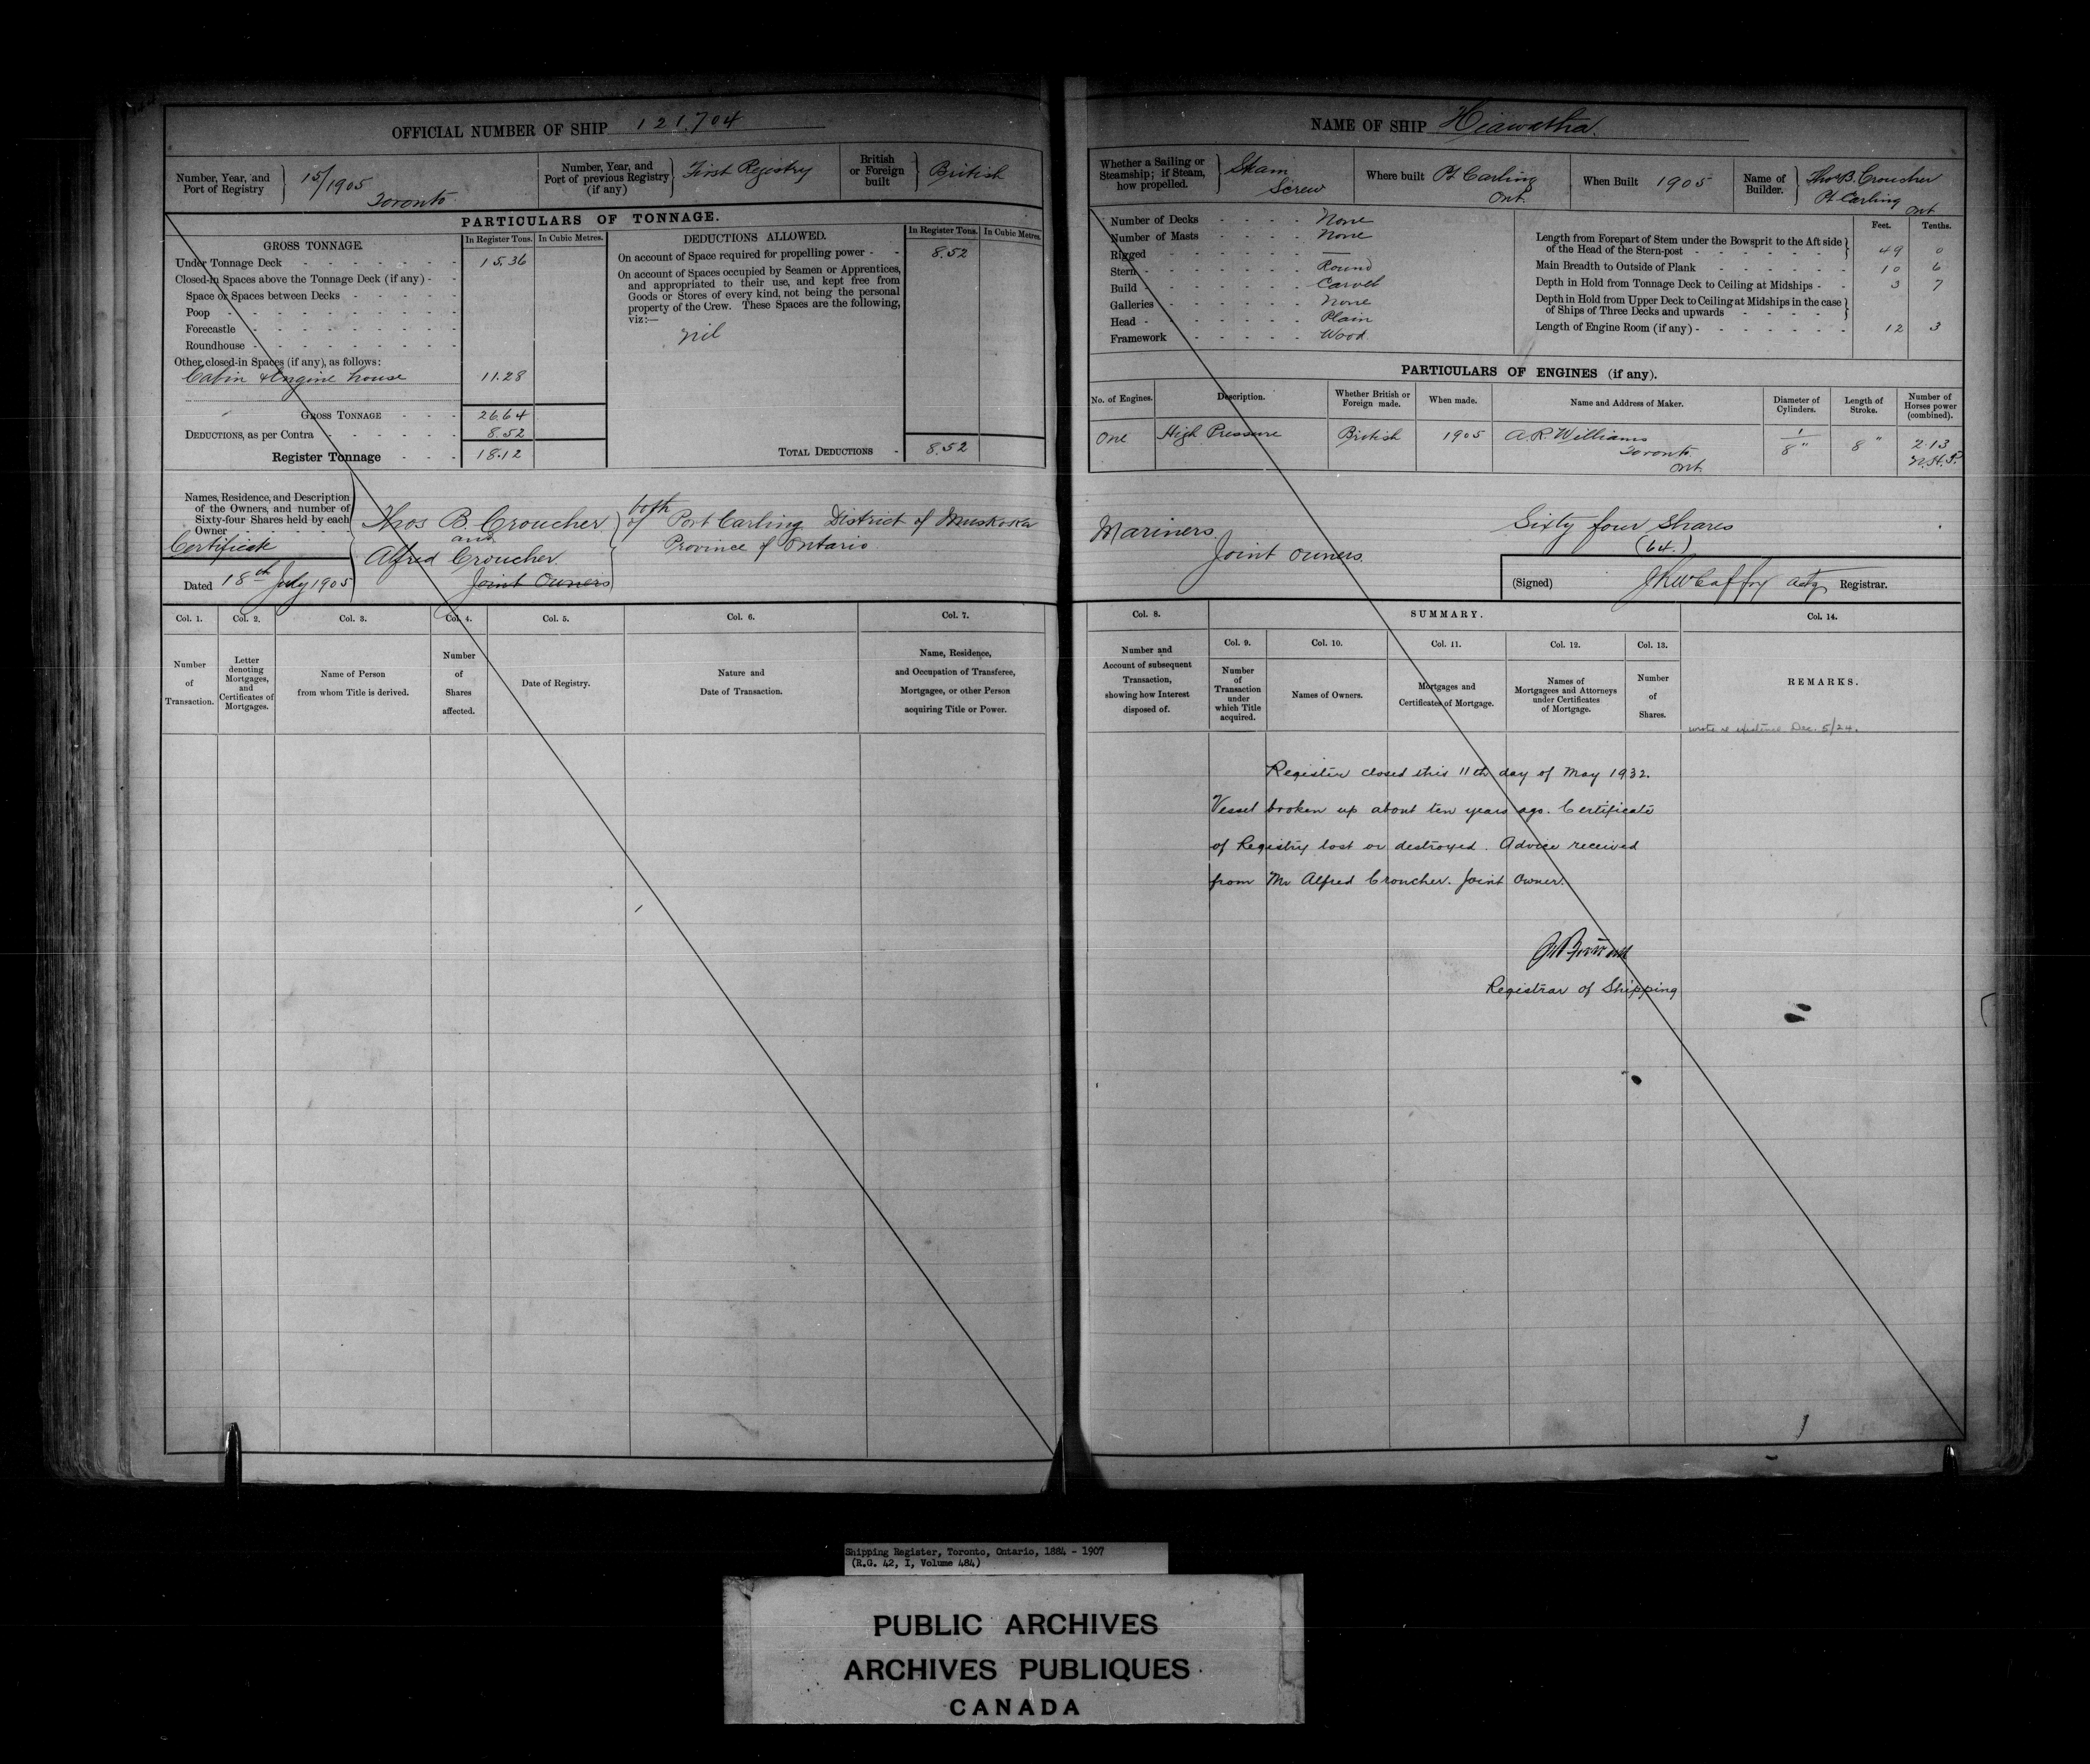 OFFICIAL NUMBER OF SHIP 121,704
Number, Year, and Port of Registry 15/1905 Toronto
Number, Year, and Port of previous Registry (if any) First Registry
British or Foreign built British
PARTICULARS OF TONNAGE.
GROSS TONNAGE. In Register Tons. In Cubic Metres.
Under Tonnage Deck 15.36
Closed-in Spaces above the Tonnage Deck (if any)
Space or Spaces between Decks
Poop
Forecastle
Roundhouse
Other closed-in Spaces (if any), as follows:
Cabin & Engine house 11.28
GROSS TONNAGE 26.64
DEDUCTIONS, as per Contra 8.52
Register Tonnage 18.12
DEDUCTIONS ALLOWED. In Register Tons. In Cubic Metres.
On account of Space required for propelling power 8.52
On account of Spaces occupied by Seamen or Apprentices,
and appropriated to their use, and kept free from
Goods or Stores of every kind, not being the personal
property of the Crew. These Spaces are the following,
viz:—
nil
TOTAL DEDUCTIONS 8.52
Names, Residence, and Description
of the Owners, and number of
Sixty-four Shares held by each
Owner
Certificate
Dated 18th July 1905
Thos B. Croucher
and
Alfred Croucher
Joint Owners
both
of Port Carling District of Muskoka
Province of Ontario
Col. 1. Col. 2. Col. 3. Col. 4. Col. 5. Col. 6. Col. 7.
Number of Transaction.
Letter denoting Mortgages, and Certificates of Mortgages.
Name of Person from whom Title is derived.
Number of Shares affected.
Date of Registry.
Nature and Date of Transaction.
Name, Residence, and Occupation of Transferee, Mortgagee, or other Person acquiring Title or Power.
NAME OF SHIP Hiawatha.
Whether a Sailing or Steamship; if Steam, how propelled. Steam Screw
Where built Pt Carling Ont.
When Built 1905
Name of Builder. Thos B. Croucher Pt Carling Ont
Number of Decks None
Number of Masts None
Rigged —
Stern Round
Build Carvel
Galleries None
Head Plain
Framework Wood
Feet. Tenths.
Length from Forepart of Stem under the Bowsprit to the Aft side
of the Head of the Stern-post 49 0
Main Breadth to Outside of Plank 10 6
Depth in Hold from Tonnage Deck to Ceiling at Midships 3 7
Depth in Hold from Upper Deck to Ceiling at Midships in the case
of Ships of Three Decks and upwards
Length of Engine Room (if any) 12 3
PARTICULARS OF ENGINES (if any).
No. of Engines. Description. Whether British or Foreign made. When made. Name and Address of Maker. Diameter of Cylinders. Length of Stroke. Number of Horses power (combined).
One High Pressure British 1905 A.R. Williams Toronto Ont. 1/8" 8" 2.13 N.H.P.
Mariners
Joint owners.
Sixty four Shares
(64.)
(Signed) Actg Registrar.
Col. 8. SUMMARY. Col. 14.
Col. 9. Col. 10. Col. 11. Col. 12. Col. 13.
Number and Account of subsequent Transaction, showing how Interest disposed of.
Number of Transaction under which Title acquired.
Names of Owners.
Mortgages and Certificates of Mortgage.
Names of Mortgagees and Attorneys under Certificates of Mortgage.
Number of Shares.
REMARKS.
wrote re existence Dec. 5/24.
Register closed this 11th day of May 1932.
Vessel broken up about ten years ago. Certificate
of Registry lost or destroyed. Advice received
from Mr Alfred Croucher. Joint Owner.
Registrar of Shipping
Shipping Register, Toronto, Ontario, 1884 - 1907
(R.G. 42, I, Volume 484)
PUBLIC ARCHIVES
ARCHIVES PUBLIQUES
CANADA